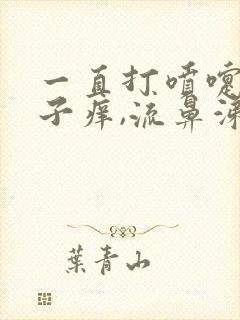 一直打喷嚏
子痒,流鼻涕
葉青山